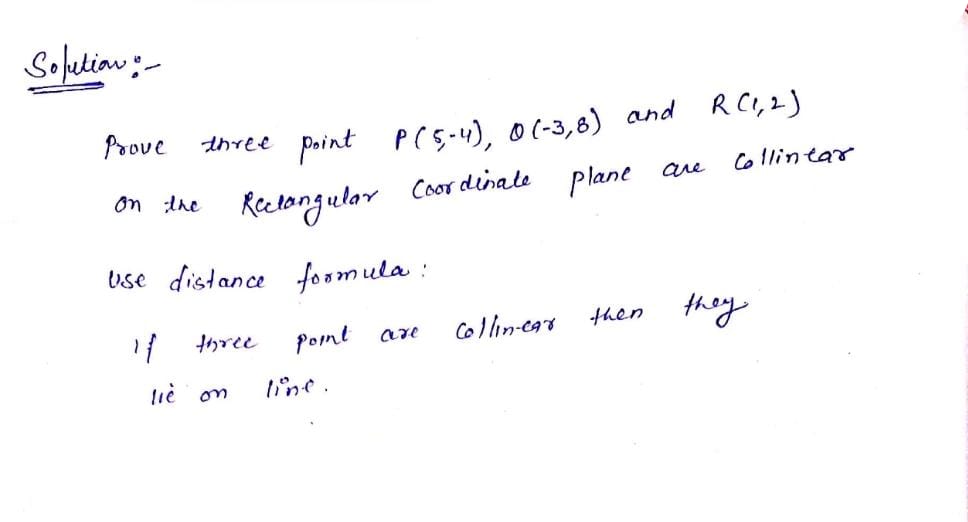 Solution:-
Prove three point P(5,-4), Q(-3,8) and R(1,2)
on the Rectangular Coordinate plane are Collinear
Use distance formula:
If three point are Collinear then they
lie on line.